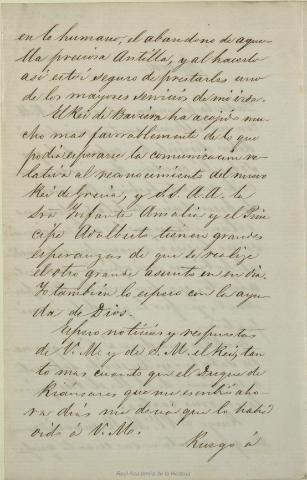 en lo humano, el abandono de aque-
lla preciosa Antilla, y al hacerlo
asi estoi seguro de prestarles uno
de los mayores servicios de mi vida.
El Rei de Baviera ha acojido mu-
cho mas favorablemente de lo que
podia esperarse la comunicacion re-
lativa al reconocimiento del nuevo
Rei de Grecia, y S.S. A.A. la
Sra Infanta Amalia y el Prin-
cipe Adalberto tienen grandes
esperanzas de que se realize
el otro grande asunto en su dia.
Yo tambien lo espero con la ayu-
da de Dios.
Espero noticias y respuestas
de V. M. y de S. M. el Rei, tan-
to mas cuanto que el Duque de
Riánsares que me escribió aho-
ra dias me decia que lo habia
oido á V. M.
Ruego á
Real Academia de la Historia